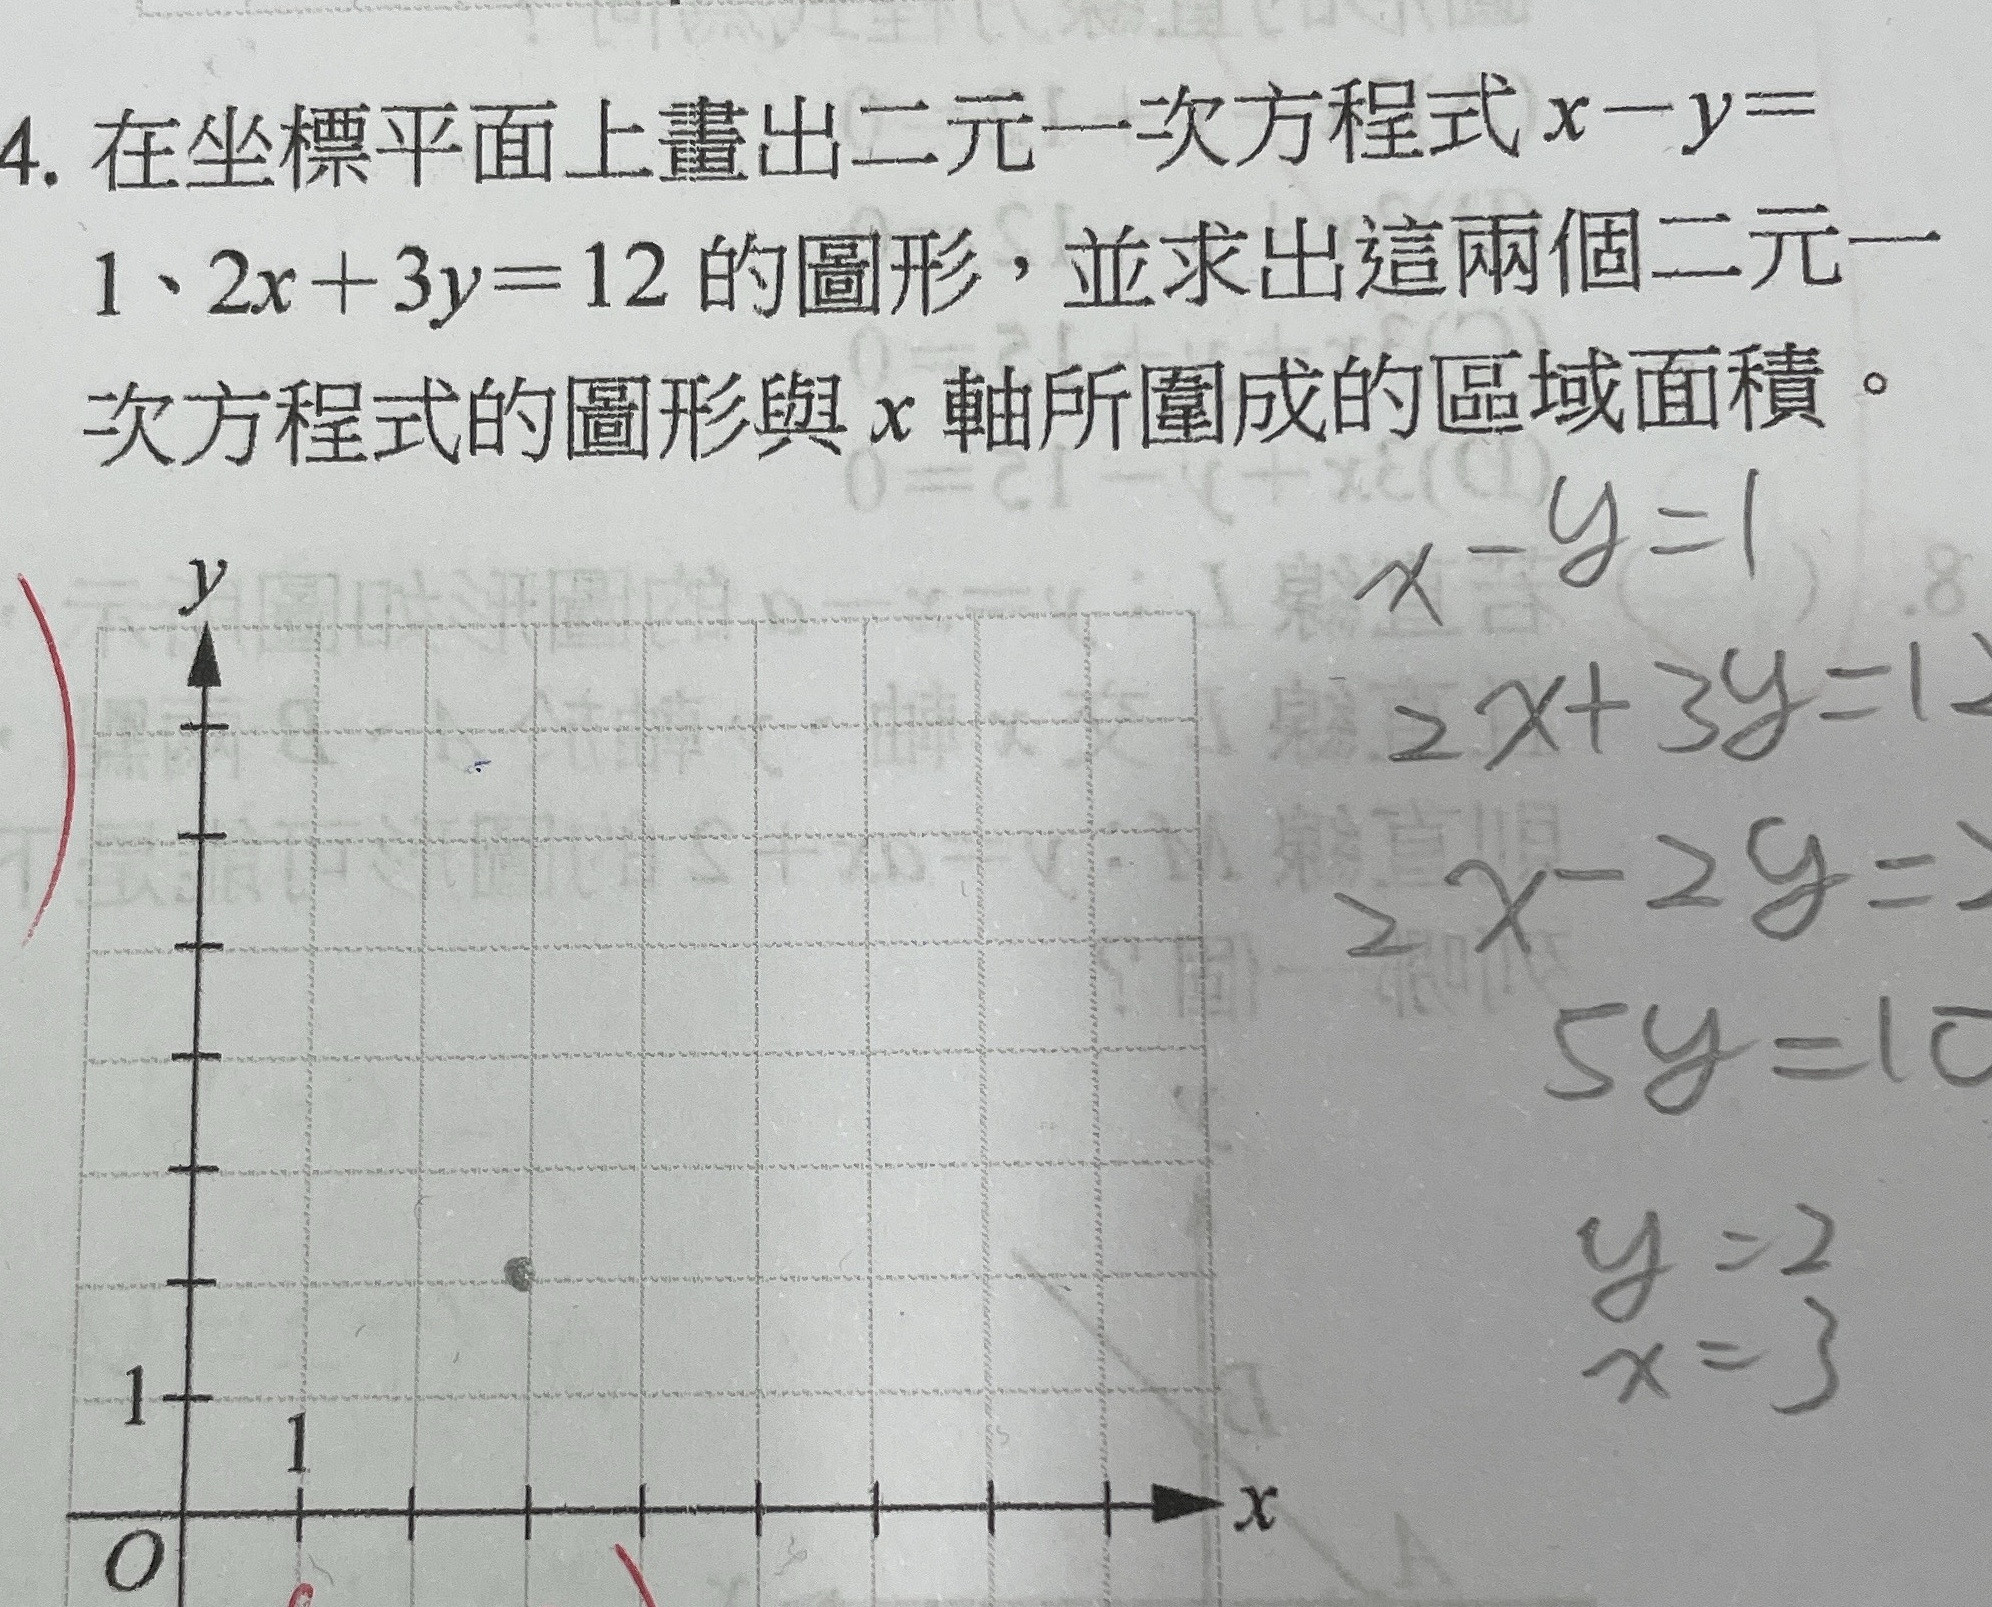 4. 在坐標平面上畫出二元一次方程式 x－y＝
1、2x＋3y＝12 的圖形，並求出這兩個二元一
次方程式的圖形與 x 軸所圍成的區域面積。
x-y=1
2x+3y=12
2x-2y=2
5y=10
y=2
x=3
y
1
1
x
O